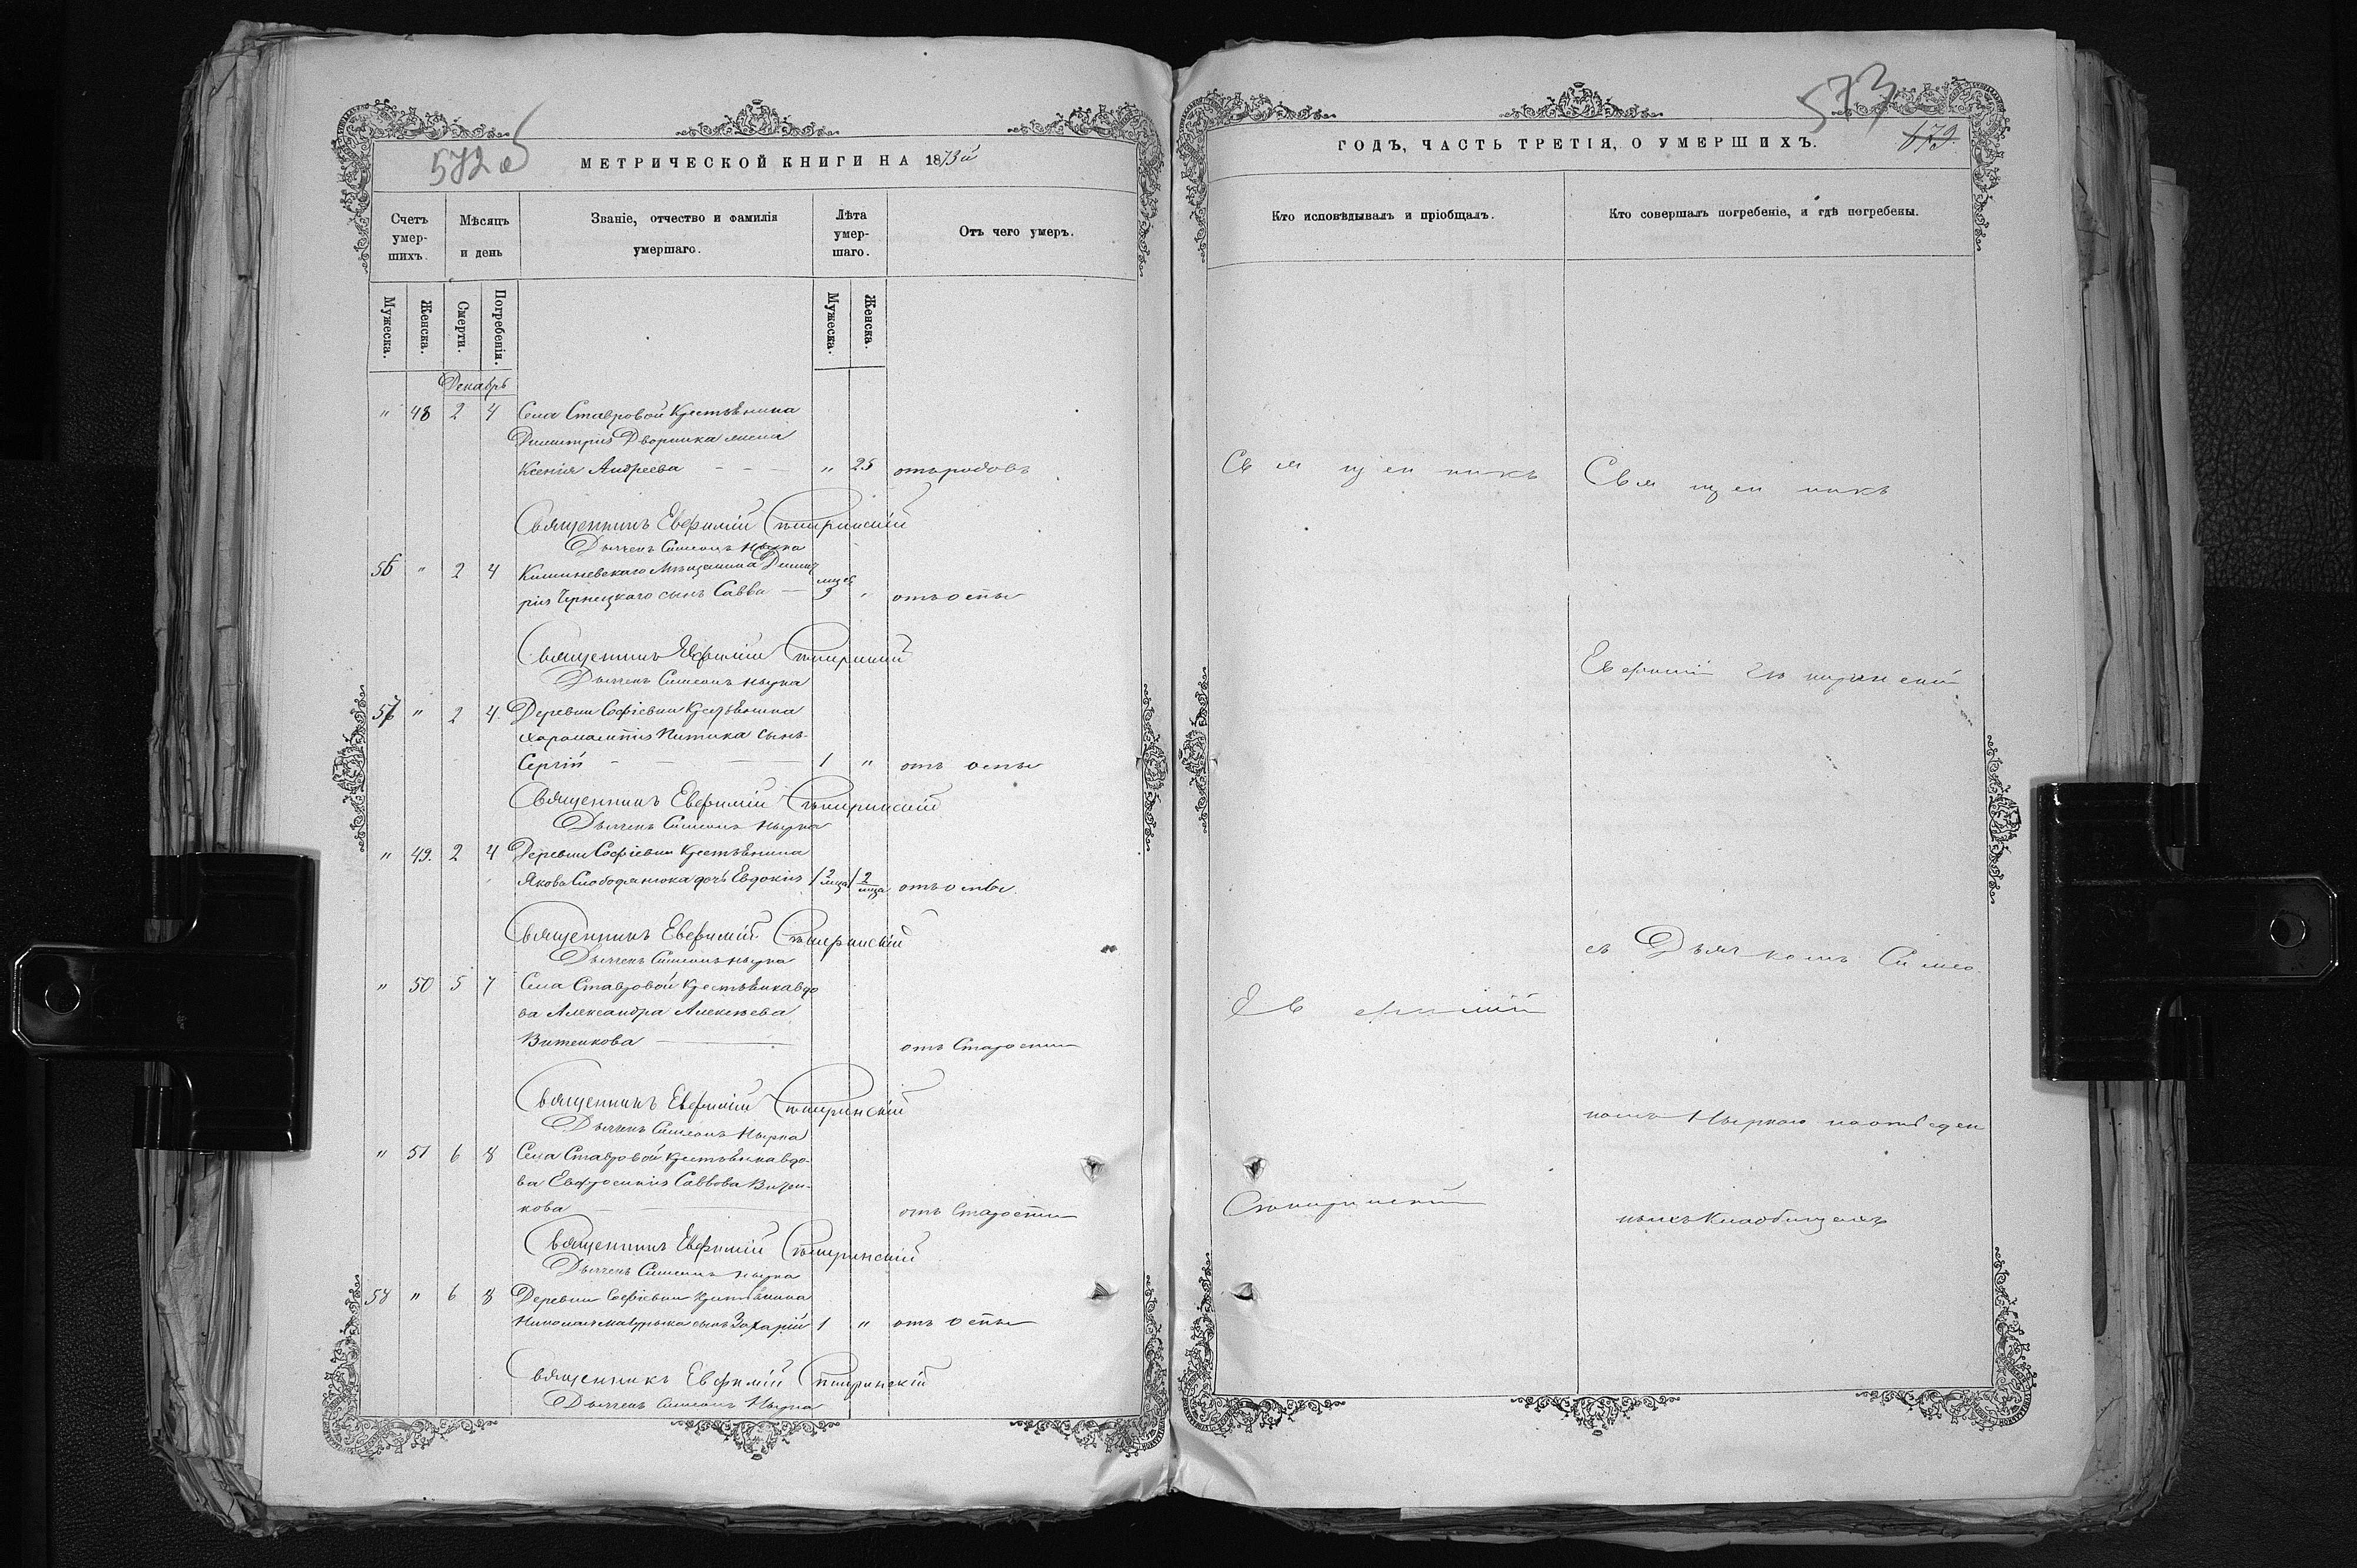 572 об
МЕТРИЧЕСКОЙ КНИГИ НА 1873й
Счетъ умер-шихъ.
Мѣсяцъ и день
Званіе, отчество и фамилія умершаго.
Лѣта умер-шаго.
Отъ чего умеръ.
Мужеска.
Женска.
Смерти.
Погребенія.
Мужеска.
Женска.
Декабрь
" 48 2 4 Села Ставровой Крестьянина
Димитрія Дворника жена
Ксенія Андреева " 25 отъ родовъ
Священникъ Евфимій
Дьячекъ Симеонъ Нырка
56 " 2 4 Кишиневскаго Мѣщанина Димит
рія Чернецкаго сынъ Савва — 9 " отъ оспы
Священникъ Евфимій
Дьячекъ Симеонъ Нырка
57 " 2 4. Деревни Софіевки Крестьянина
Харалампія сынъ
Сергій 1 " отъ оспы
Священникъ Евфимій
Дьячекъ Симеонъ Нырка
" 49. 2 4 Деревни Софіевки Крестьянина
Якова Слободянюка дочь Евдокія отъ оспы.
Священникъ Евфимій
Дьячекъ Симеонъ Нырка
" 50 5 7 Села Ставровой Крестьянка вдо
ва Александра Алексѣева
отъ Старости
Священникъ Евфимій
Дьячекъ Симеонъ Нырка
" 51 6 8 Села Ставровой Крестьянка вдо-
ва Евфросинія Саввова
кова отъ Старости
Священникъ Евфимій
Дьячекъ Симеонъ Нырка
58 " 6 8 Деревни Софіевки Крестьянина
Николая сынъ Захарій 1 " отъ оспы
Священникъ Евфимій
Дьячекъ Симеонъ Нырка
573
ГОДЪ, ЧАСТЬ ТРЕТІЯ, О УМЕРШИХЪ.
679.
Кто исповѣдывалъ и пріобщалъ.
Кто совершалъ погребеніе, и гдѣ погребены.
Священникъ
Евфимій
Священникъ
Евфимій
съ Дьячкомъ Симео-
номъ Ныркою на отведен
ныхъ Кладбищахъ